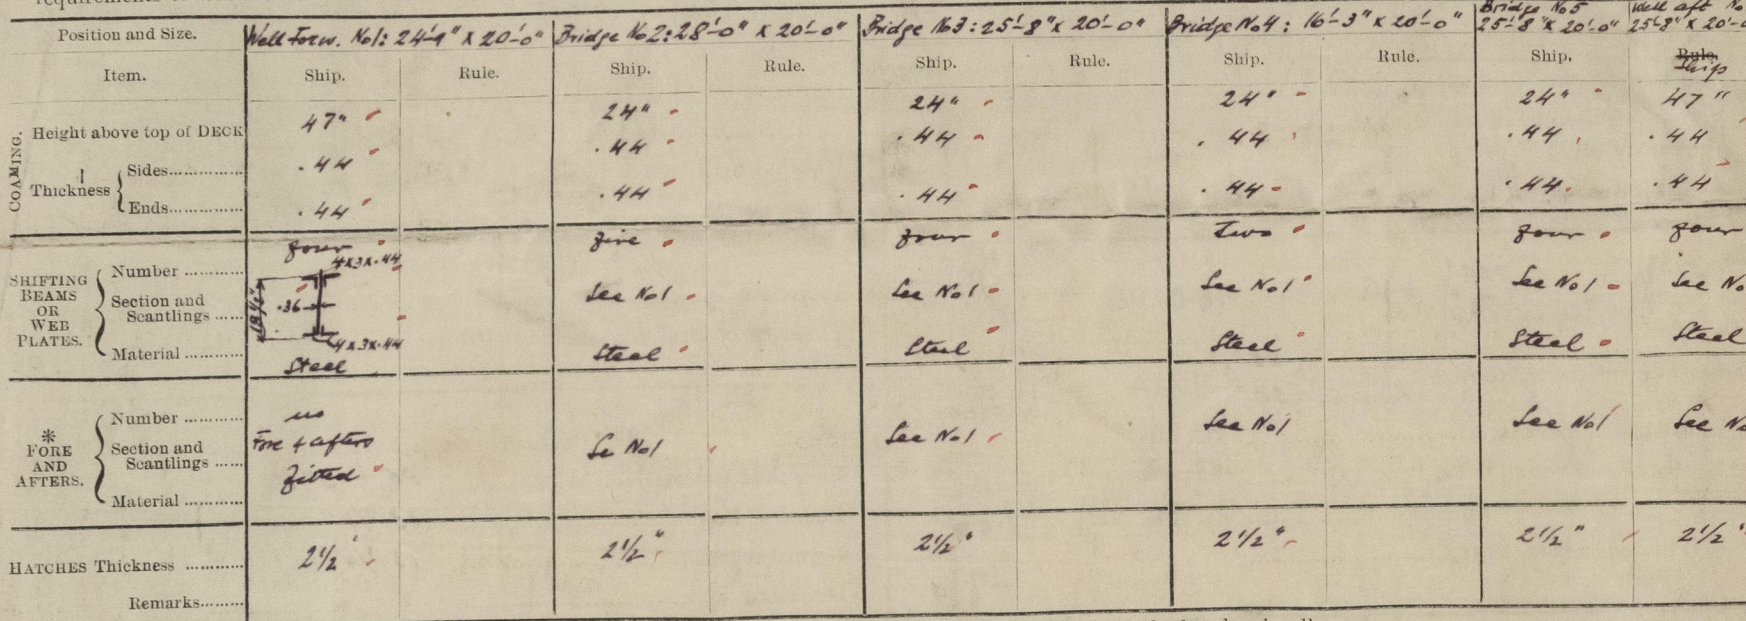 Position and Size. Well Forw. No1: 24'-9" × 20'-0" Bridge No2: 28'-0" × 20'-0" Bridge No3: 25'-8" × 20'-0" Bridge No4: 16'-3" × 20'-0" Bridge No5 25'-8" × 20'-0" Well aft No 25'-8" × 20'-0
Item. Ship. Rule. Ship. Rule. Ship. Rule. Ship. Rule. Ship. Rule. Ship
COAMING.
Height above top of DECK 47" 24" 24" 24" 24" 47"
Thickness
Sides............... .44 .44 .44 .44 .44 .44
Ends............... .44 .44 .44 .44 .44 .44
SHIFTING BEAMS OR WEB PLATES.
Number ............ four five four two four four
Section and Scantlings ...... 4×3×.44 18½" .36 4×3×.44 See No1 See No1 See No1 See No1 See No
Material ............ Steel Steel Steel Steel Steel Steel
* FORE AND AFTERS.
Number ............ no
Section and Scantlings ...... Fore & afters fitted Se No1 See No1 See No1 See No1 See No
Material ............
HATCHES Thickness ............ 2½" 2½" 2½" 2½" 2½" 2½"
Remarks.........